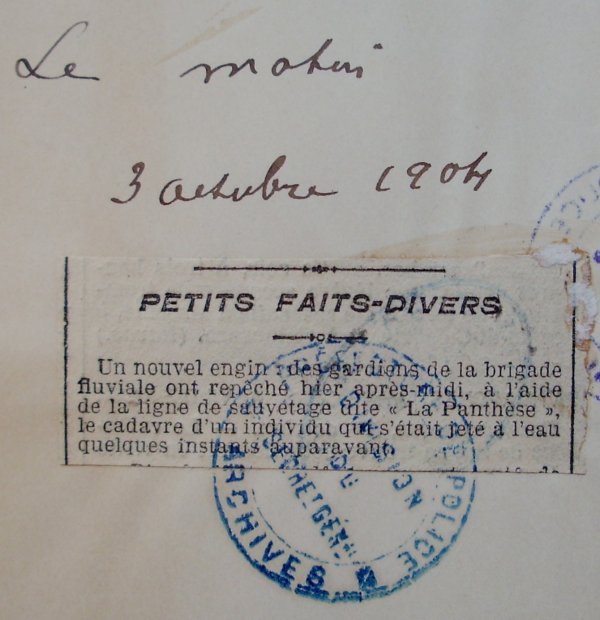 Le matin
3 octobre 1904
PETITS FAITS-DIVERS
Un nouvel engin : des gardiens de la brigade
fluviale ont repêché hier après-midi, à l'aide
de la ligne de sauvetage dite « La Panthèse »,
le cadavre d'un individu qui s'était jeté à l'eau
quelques instants auparavant.
ARCHIVES
POLICE
DU